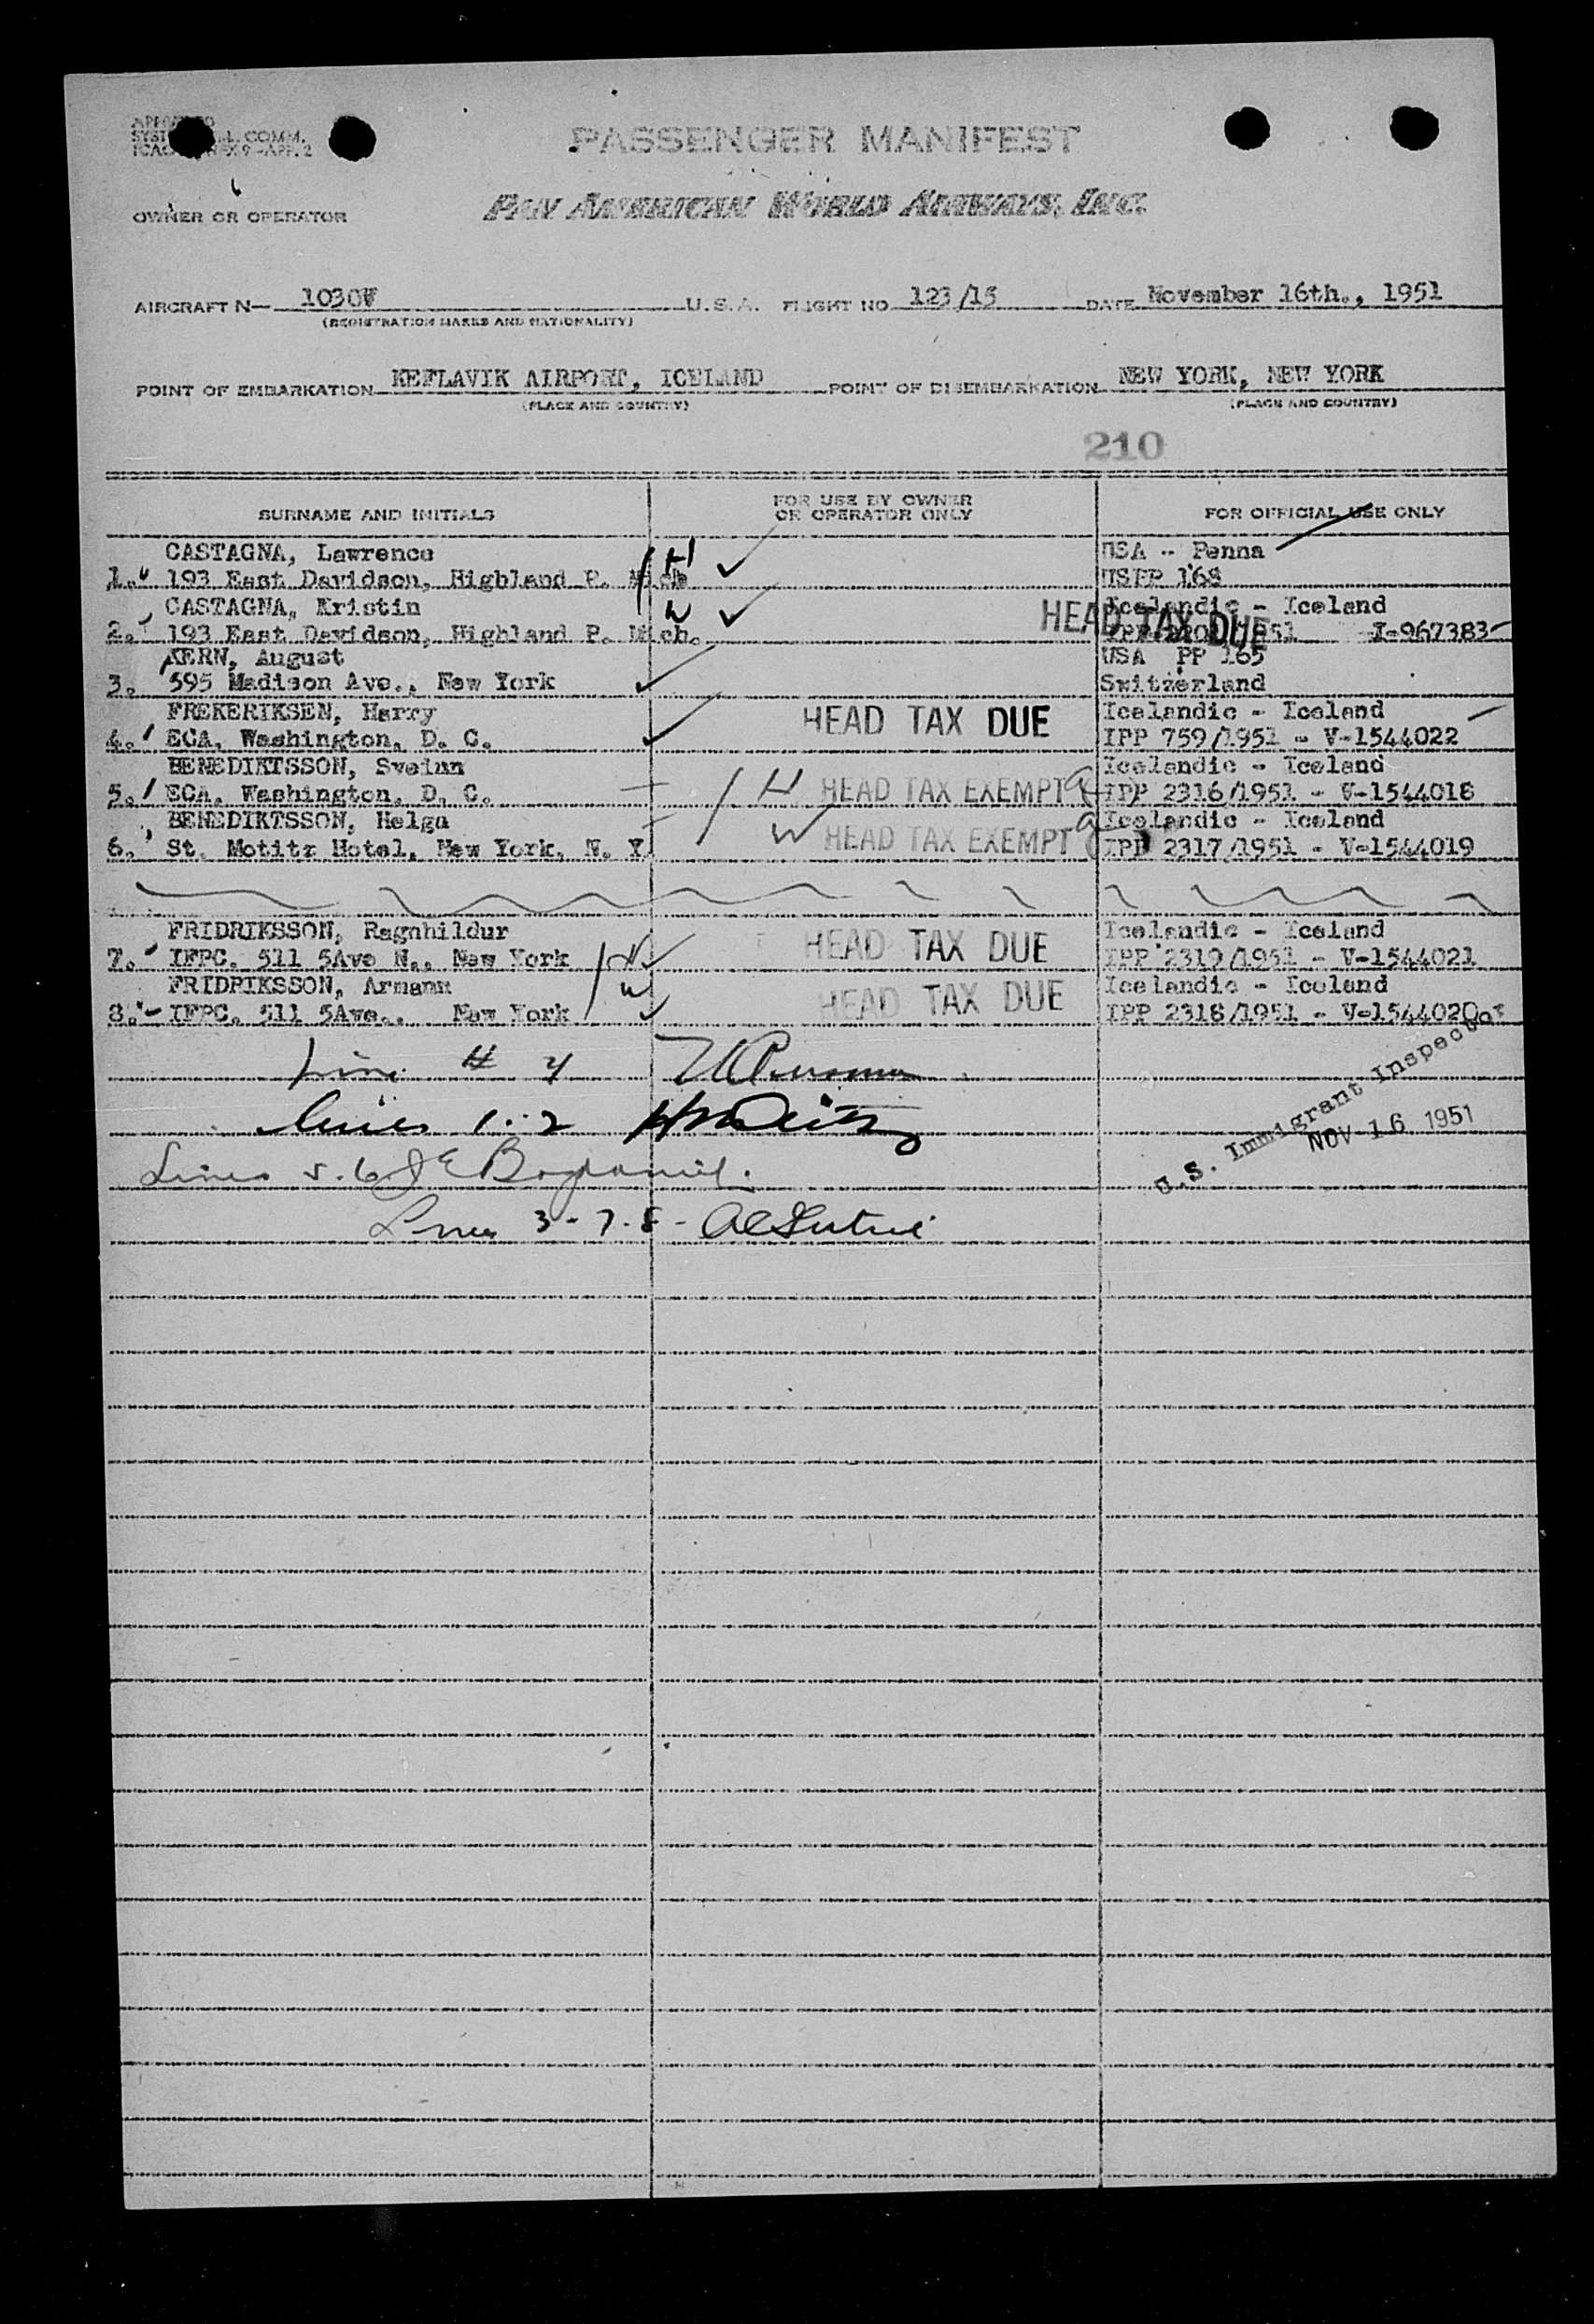 PASSENGER MANIFEST
OWNER OR OPERATOR
PAN AMERICAN WORLD AIRWAYS, INC.
AIRCRAFT N— 1030V U.S.A. FLIGHT NO 123/15 DATE November 16th., 1951
(REGISTRATION MARKS AND NATIONALITY)
POINT OF EMBARKATION KEFLAVIK AIRPORT, ICELAND POINT OF DISEMBARKATION NEW YORK, NEW YORK
(PLACE AND COUNTRY) (PLACE AND COUNTRY)
210
SURNAME AND INITIALS FOR USE BY OWNER OR OPERATOR ONLY FOR OFFICIAL USE ONLY
CASTAGNA, Lawrence H USA -- Penna
1. 193 East Davidson, Highland P. Mich USPP 168
CASTAGNA, Kristin W HEAD TAX DUE Icelandic - Iceland
2. 193 East Davidson, Highland P. Mich. I-967383
KERN, August USA PP 165
3. 595 Madison Ave., New York Switzerland
FREKERIKSEN, Harry HEAD TAX DUE Icelandic - Iceland
4. ECA, Washington, D. C. IPP 759/1951 - V-1544022
BENEDIKTSSON, Sveinn Icelandic - Iceland
5. ECA, Washington, D. C. H HEAD TAX EXEMPT IPP 2316/1951 - V-1544018
BENEDIKTSSON, Helga Icelandic - Iceland
6. St. Motitz Hotel, New York, N. Y. W HEAD TAX EXEMPT IPP 2317/1951 - V-1544019
FRIDRIKSSON, Ragnhildur HEAD TAX DUE Icelandic - Iceland
7. IFPC. 511 5Ave N., New York IPP 2319/1951 - V-1544021
FRIDRIKSSON, Armann W HEAD TAX DUE Icelandic - Iceland
8. IFPC. 511 5Ave., New York IPP 2318/1951 - V-1544020
Line # 4
Lines 1-2
U.S. Immigrant Inspector
NOV 16 1951
Lines 5.6
Lines 3-7-8-